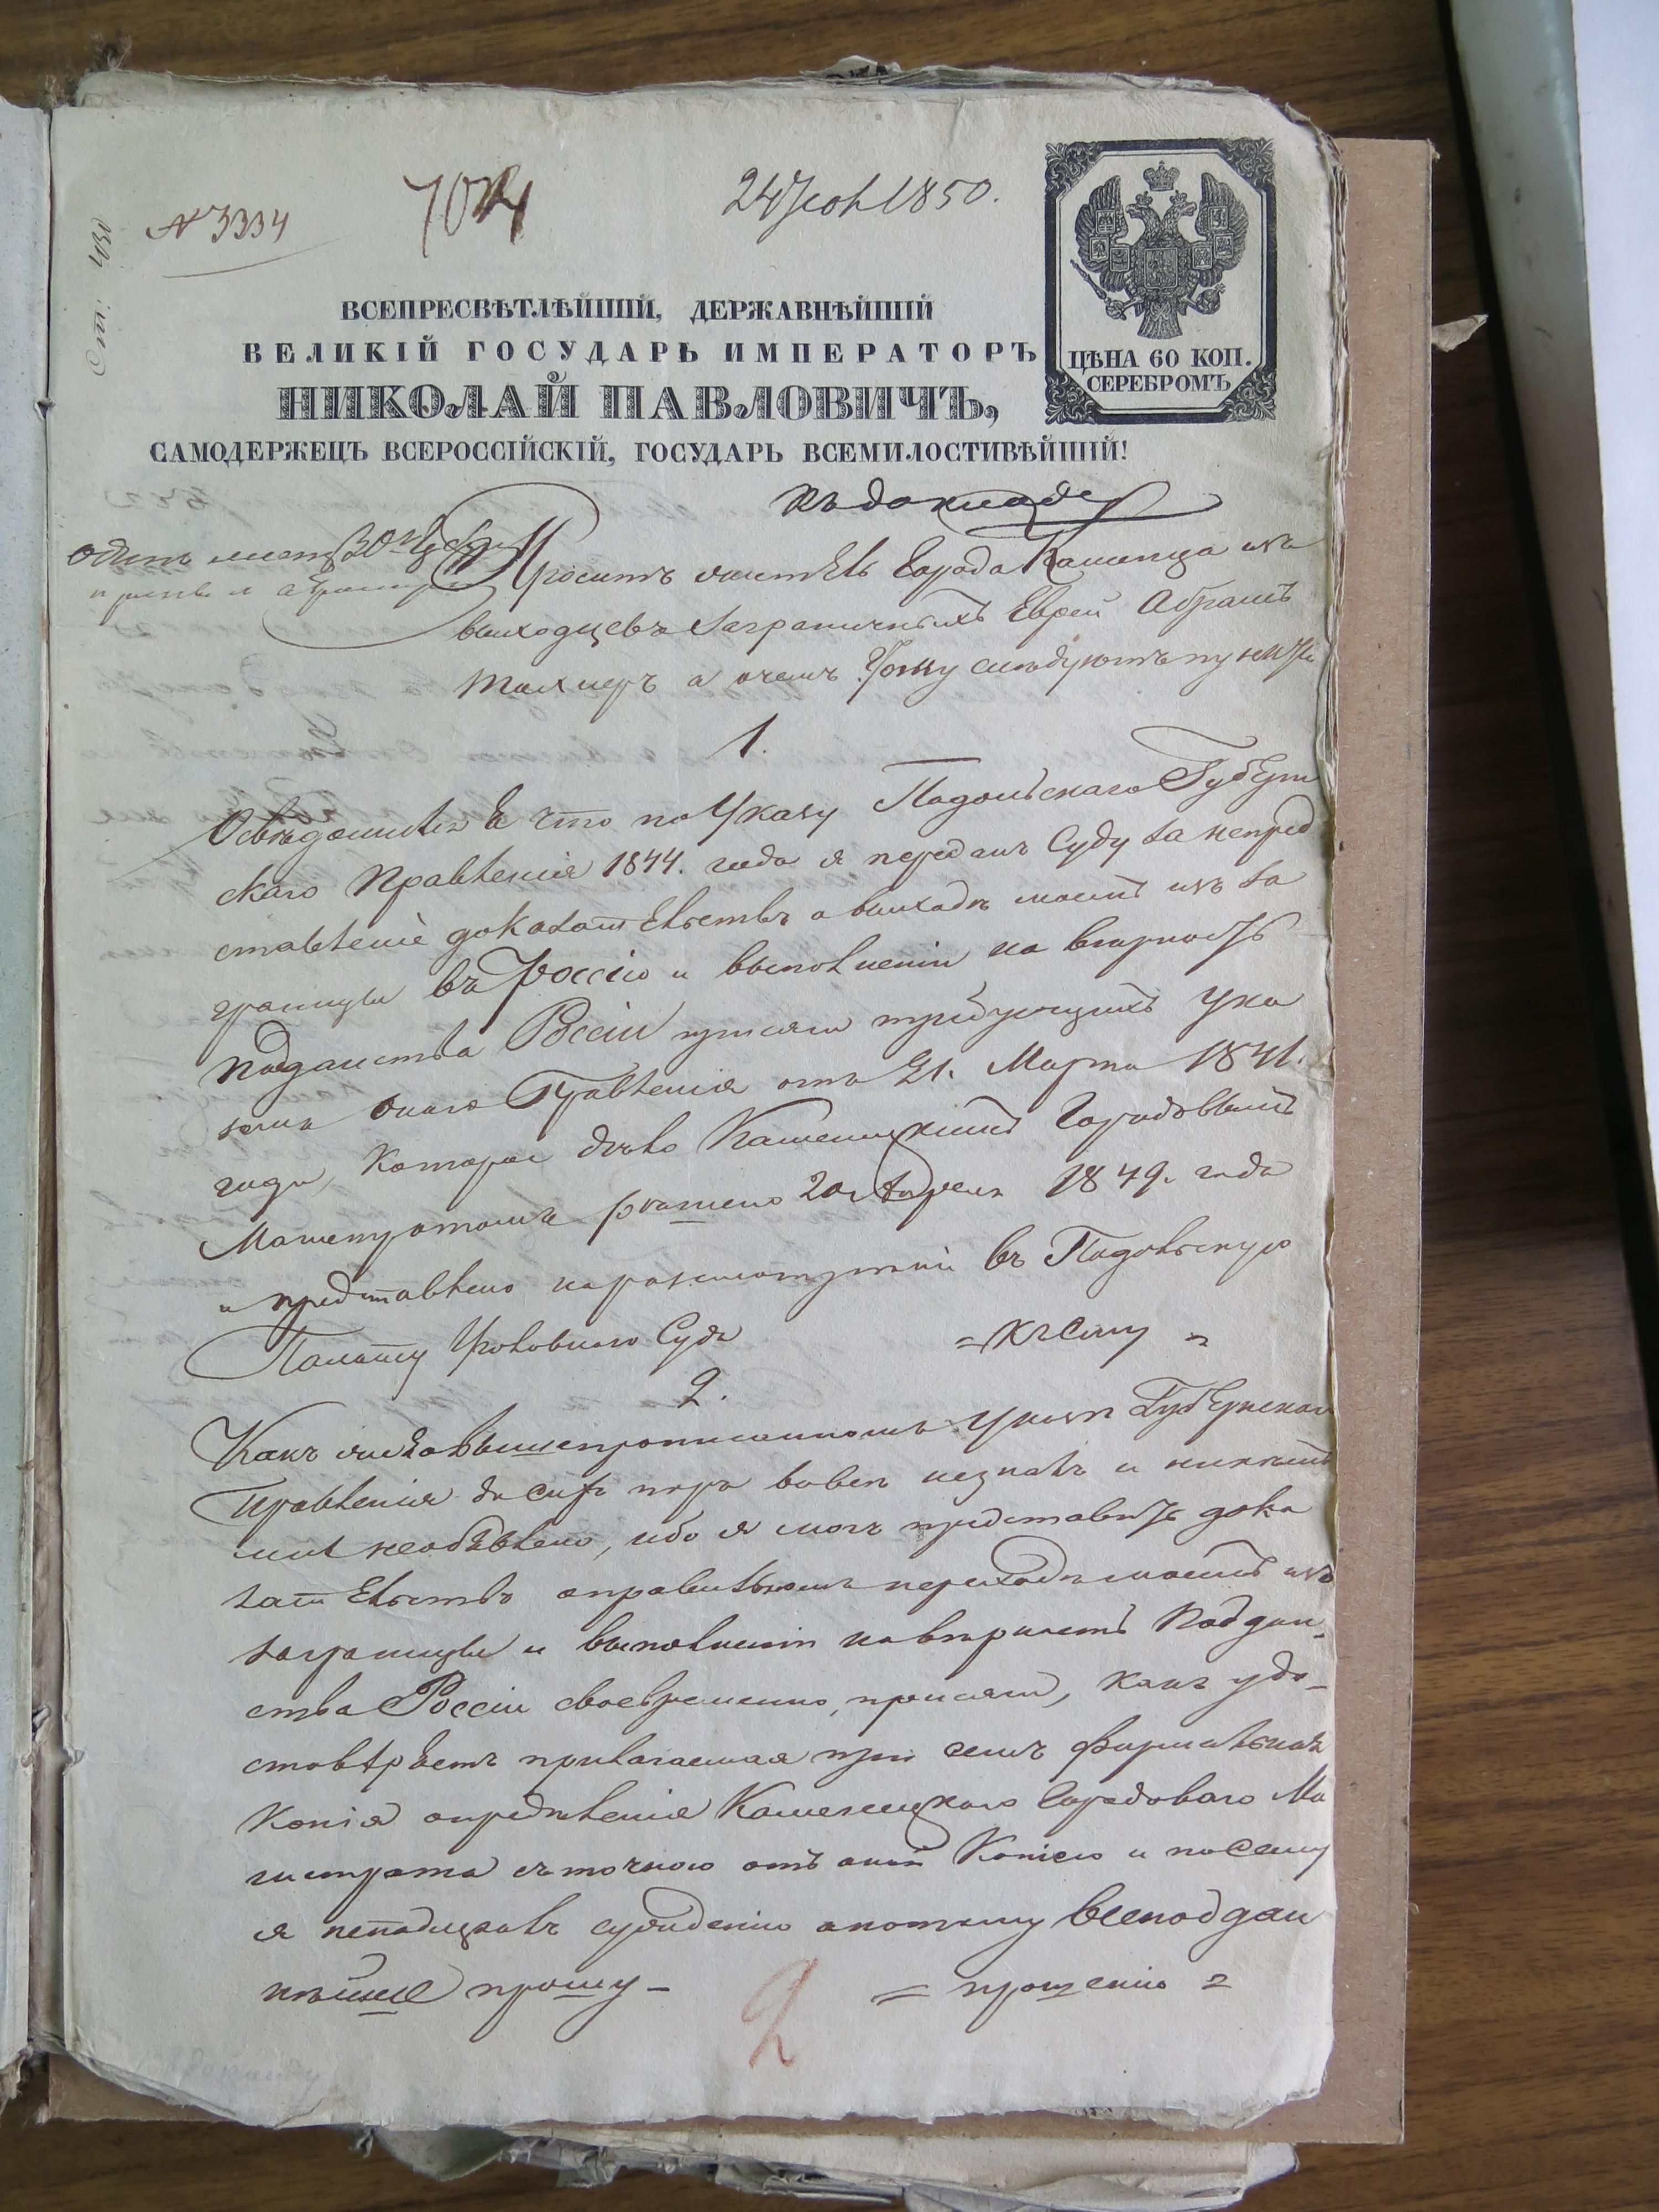 № 3334
24 Іюня 1850.
ВСЕПРЕСВѢТЛѢЙШІЙ, ДЕРЖАВНѢЙШІЙ
ВЕЛИКІЙ ГОСУДАРЬ ИМПЕРАТОРЪ
НИКОЛАЙ ПАВЛОВИЧЪ,
САМОДЕРЖЕЦЪ ВСЕРОССІЙСКІЙ, ГОСУДАРЬ ВСЕМИЛОСТИВѢЙШІЙ!
ЦѢНА 60 КОП.
СЕРЕБРОМЪ
къ докладу
одинъ листъ
Проситъ житель города Каменца изъ
выходцевъ заграничныхъ Еврей Абрамъ
а о чемъ тому слѣдуютъ пункты
1.
Освѣдомился я что по Указу Подольскаго Губерн
скаго Правленія 1844. года я переданъ Суду за непред
ставленіе доказательствъ о выходѣ моемъ изъ за
границы въ Россію и выполненіи на вѣрность
подданства Россіи присяги требующихъ Ука
зомъ онаго Правленія отъ 21. Марта 1841.
года, которое дѣло Каменецкимъ Городовымъ
Магистратомъ рѣшено 20 Апреля 1849. года
и представлено на разсмотреніи въ Подольскую
Палату Уголовнаго Суда = къ сему =
2.
Какъ мнѣ о вышепрописанномъ Указѣ Губернскаго
Правленія до сихъ поръ вовсе незналъ и никѣмъ
мнѣ необъявлено, ибо я могъ представить дока
зательствъ о правильномъ переходѣ моемъ изъ
заграницы и выполненіи на вѣрность поддан-
ства Россіи своевременно, присяги, какъ удо-
стовѣряетъ прилагаемая при семъ формальная
копія опредѣленія Каменецкаго Городоваго Ма
гистрата съ точною отъ оной Копіею и по сему
я неподлежалъ сужденію а потому всеподдан
нѣйше прошу - = прошенію =
2